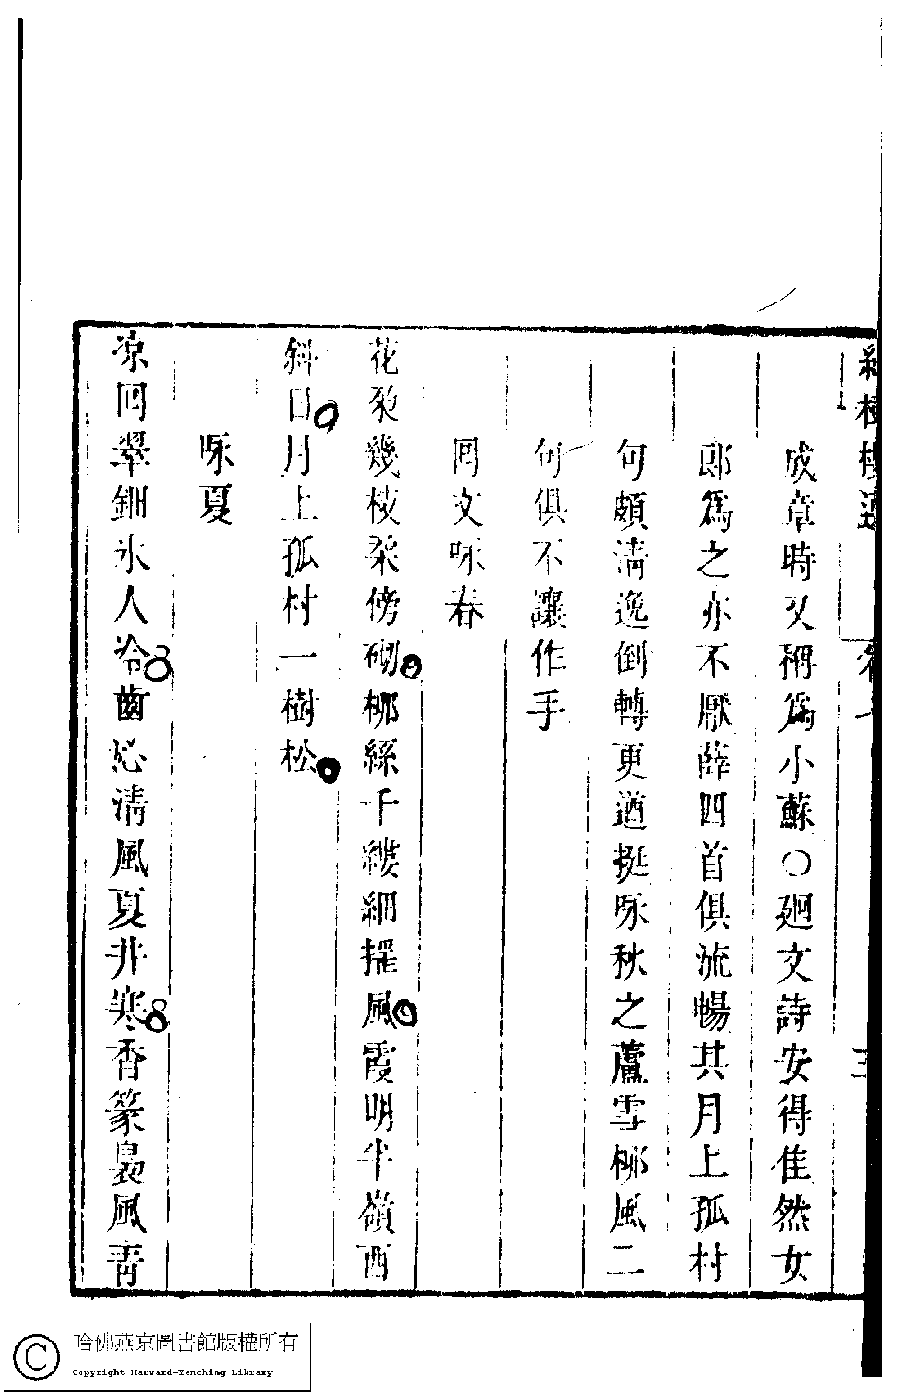 成章時又稱爲小蘇〇廻文詩安得佳然女
郎爲之亦不厭薛四首俱流暢其月上孤村
句頗清逸倒轉更遒挺咏秋之蘆雪柳風二
句俱不讓作手
回文咏春
花朶幾枝柔傍砌柳絲千縷細搖風霞明半嶺西
斜日月上孤村一樹松
咏夏
凉回翠鈿氷人冷齒沁清風夏井寒香篆裊風青
哈佛燕京圖書館版權所有
Copyright Harvard-Yenching Library